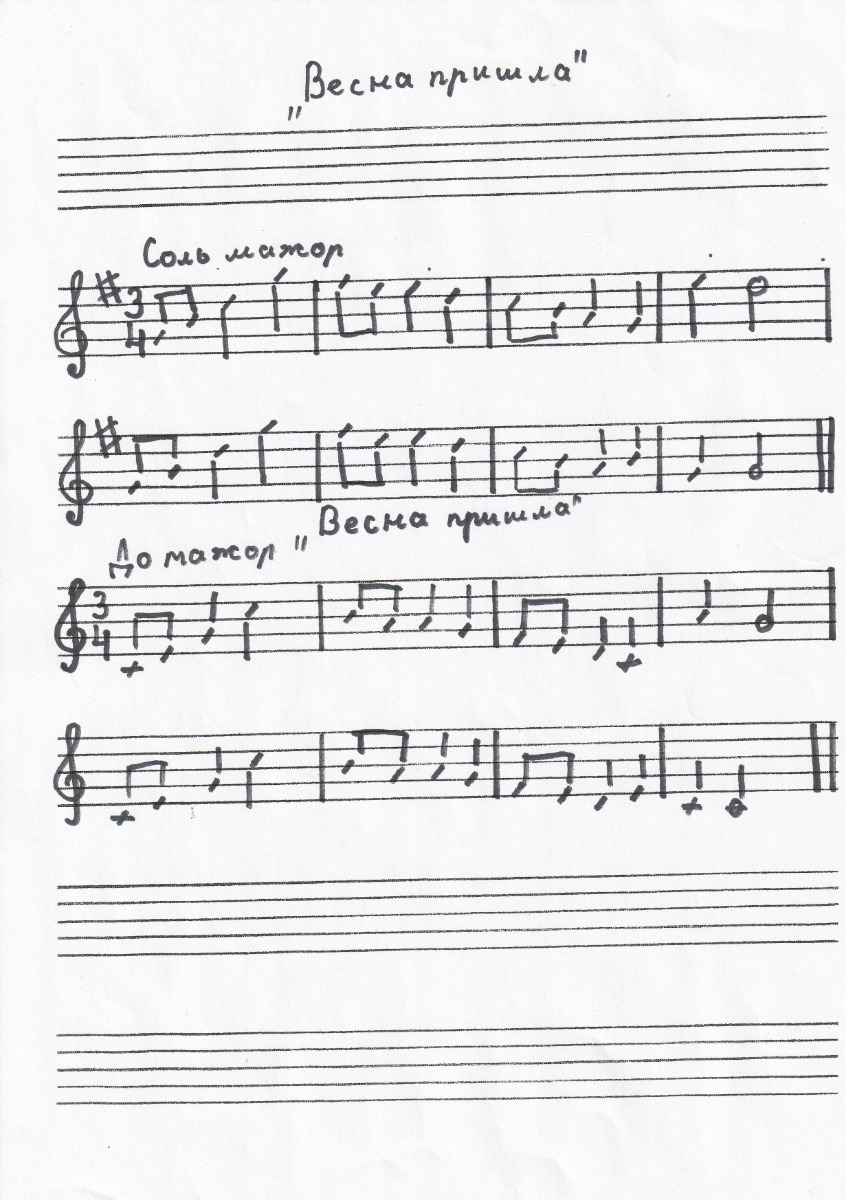 „Весна пришла"
Соль мажор
3
4
До мажор „Весна пришла"
3
4